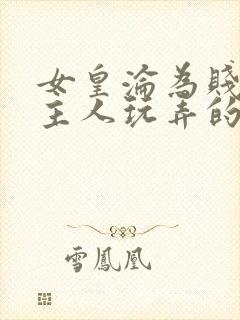 女皇淪為賤
主人玩弄的
雪鳳凰